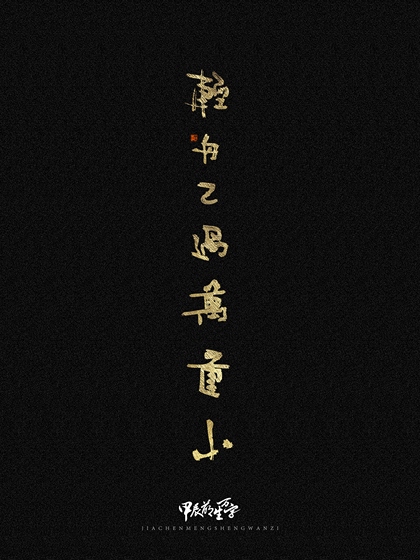 輕舟已過萬重山
甲辰萌生万字
JIACHENMENGSHENGWANZI